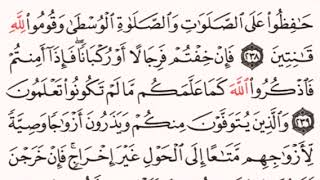 حَـٰفِظُوا۟ عَلَى ٱلصَّلَوَٰتِ وَٱلصَّلَوٰةِ ٱلْوُسْطَىٰ وَقُومُوا۟ لِلَّهِ
قَـٰنِتِينَ ٢٣٨ فَإِنْ خِفْتُمْ فَرِجَالًا أَوْ رُكْبَانًا ۖ فَإِذَآ أَمِنتُمْ
فَٱذْكُرُوا۟ ٱللَّهَ كَمَا عَلَّمَكُم مَّا لَمْ تَكُونُوا۟ تَعْلَمُونَ
٢٣٩ وَٱلَّذِينَ يُتَوَفَّوْنَ مِنكُمْ وَيَذَرُونَ أَزْوَٰجًا وَصِيَّةً
لِّأَزْوَٰجِهِم مَّتَـٰعًا إِلَى ٱلْحَوْلِ غَيْرَ إِخْرَاجٍ ۚ فَإِنْ خَرَجْنَ